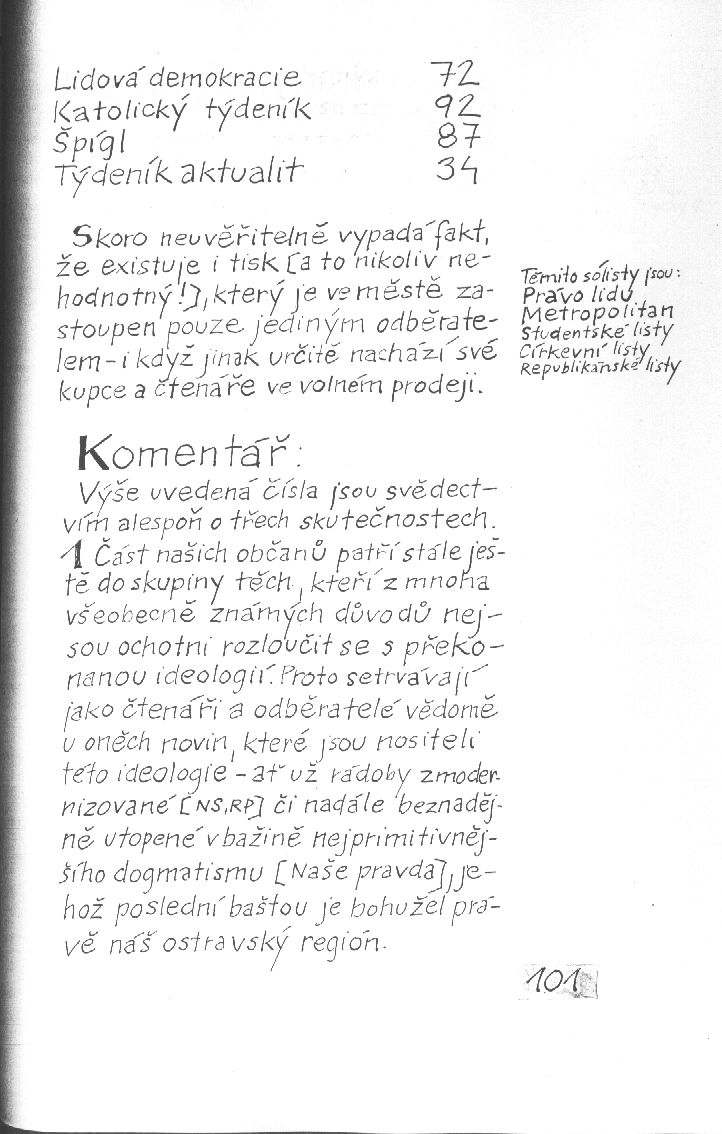 Lidová demokracie 72
Katolický týdeník 92
Špígl 87
Týdeník aktualit 34
Skoro neuvěřitelně vypadá fakt,
že existuje i tisk [a to nikoliv ne-
hodnotný!], který je ve městě za-
stoupen pouze jediným odběrate-
lem - i když jinak určitě nachází své
kupce a čtenáře ve volném prodeji.
Těmito sólisty jsou:
Právo lidu
Metropolitan
Studentské listy
Církevní listy
Republikánské listy
Komentář:
Výše uvedená čísla jsou svědect-
vím alespoň o třech skutečnostech.
1 Část našich občanů patří stále ješ-
tě do skupiny těch, kteří z mnoha
všeobecně známých důvodů nej-
sou ochotni rozloučit se s překo-
nanou ideologií. Proto setrvávají
jako čtenáři a odběratelé vědomě
u oněch novin, které jsou nositeli
této ideologie - ať už rádoby zmoder-
nizované [NS, RP] či nadále beznaděj-
ně utopené v bažině nejprimitivněj-
šího dogmatismu [Naše pravda], je-
hož poslední baštou je bohužel prá-
vě náš ostravský región.
101